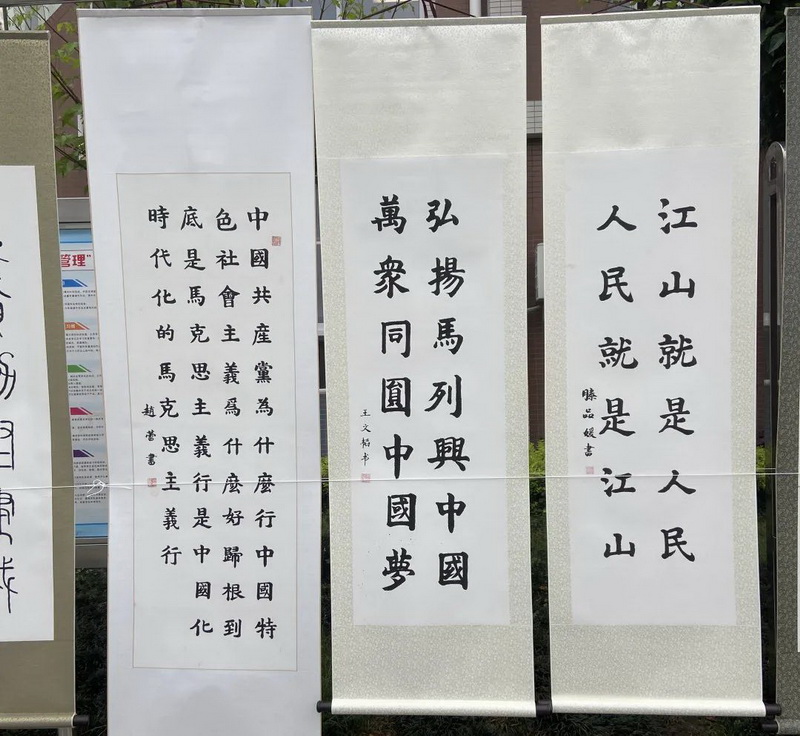 江山就是人民
人民就是江山
滕品媛書
弘揚馬列興中國
萬衆同圓中國夢
王文韬书
中國共産黨為什麼行中國特
色社會主義爲什麼好歸根到
底是馬克思主義行是中國化
時代化的馬克思主義行
趙蕾書
管理”